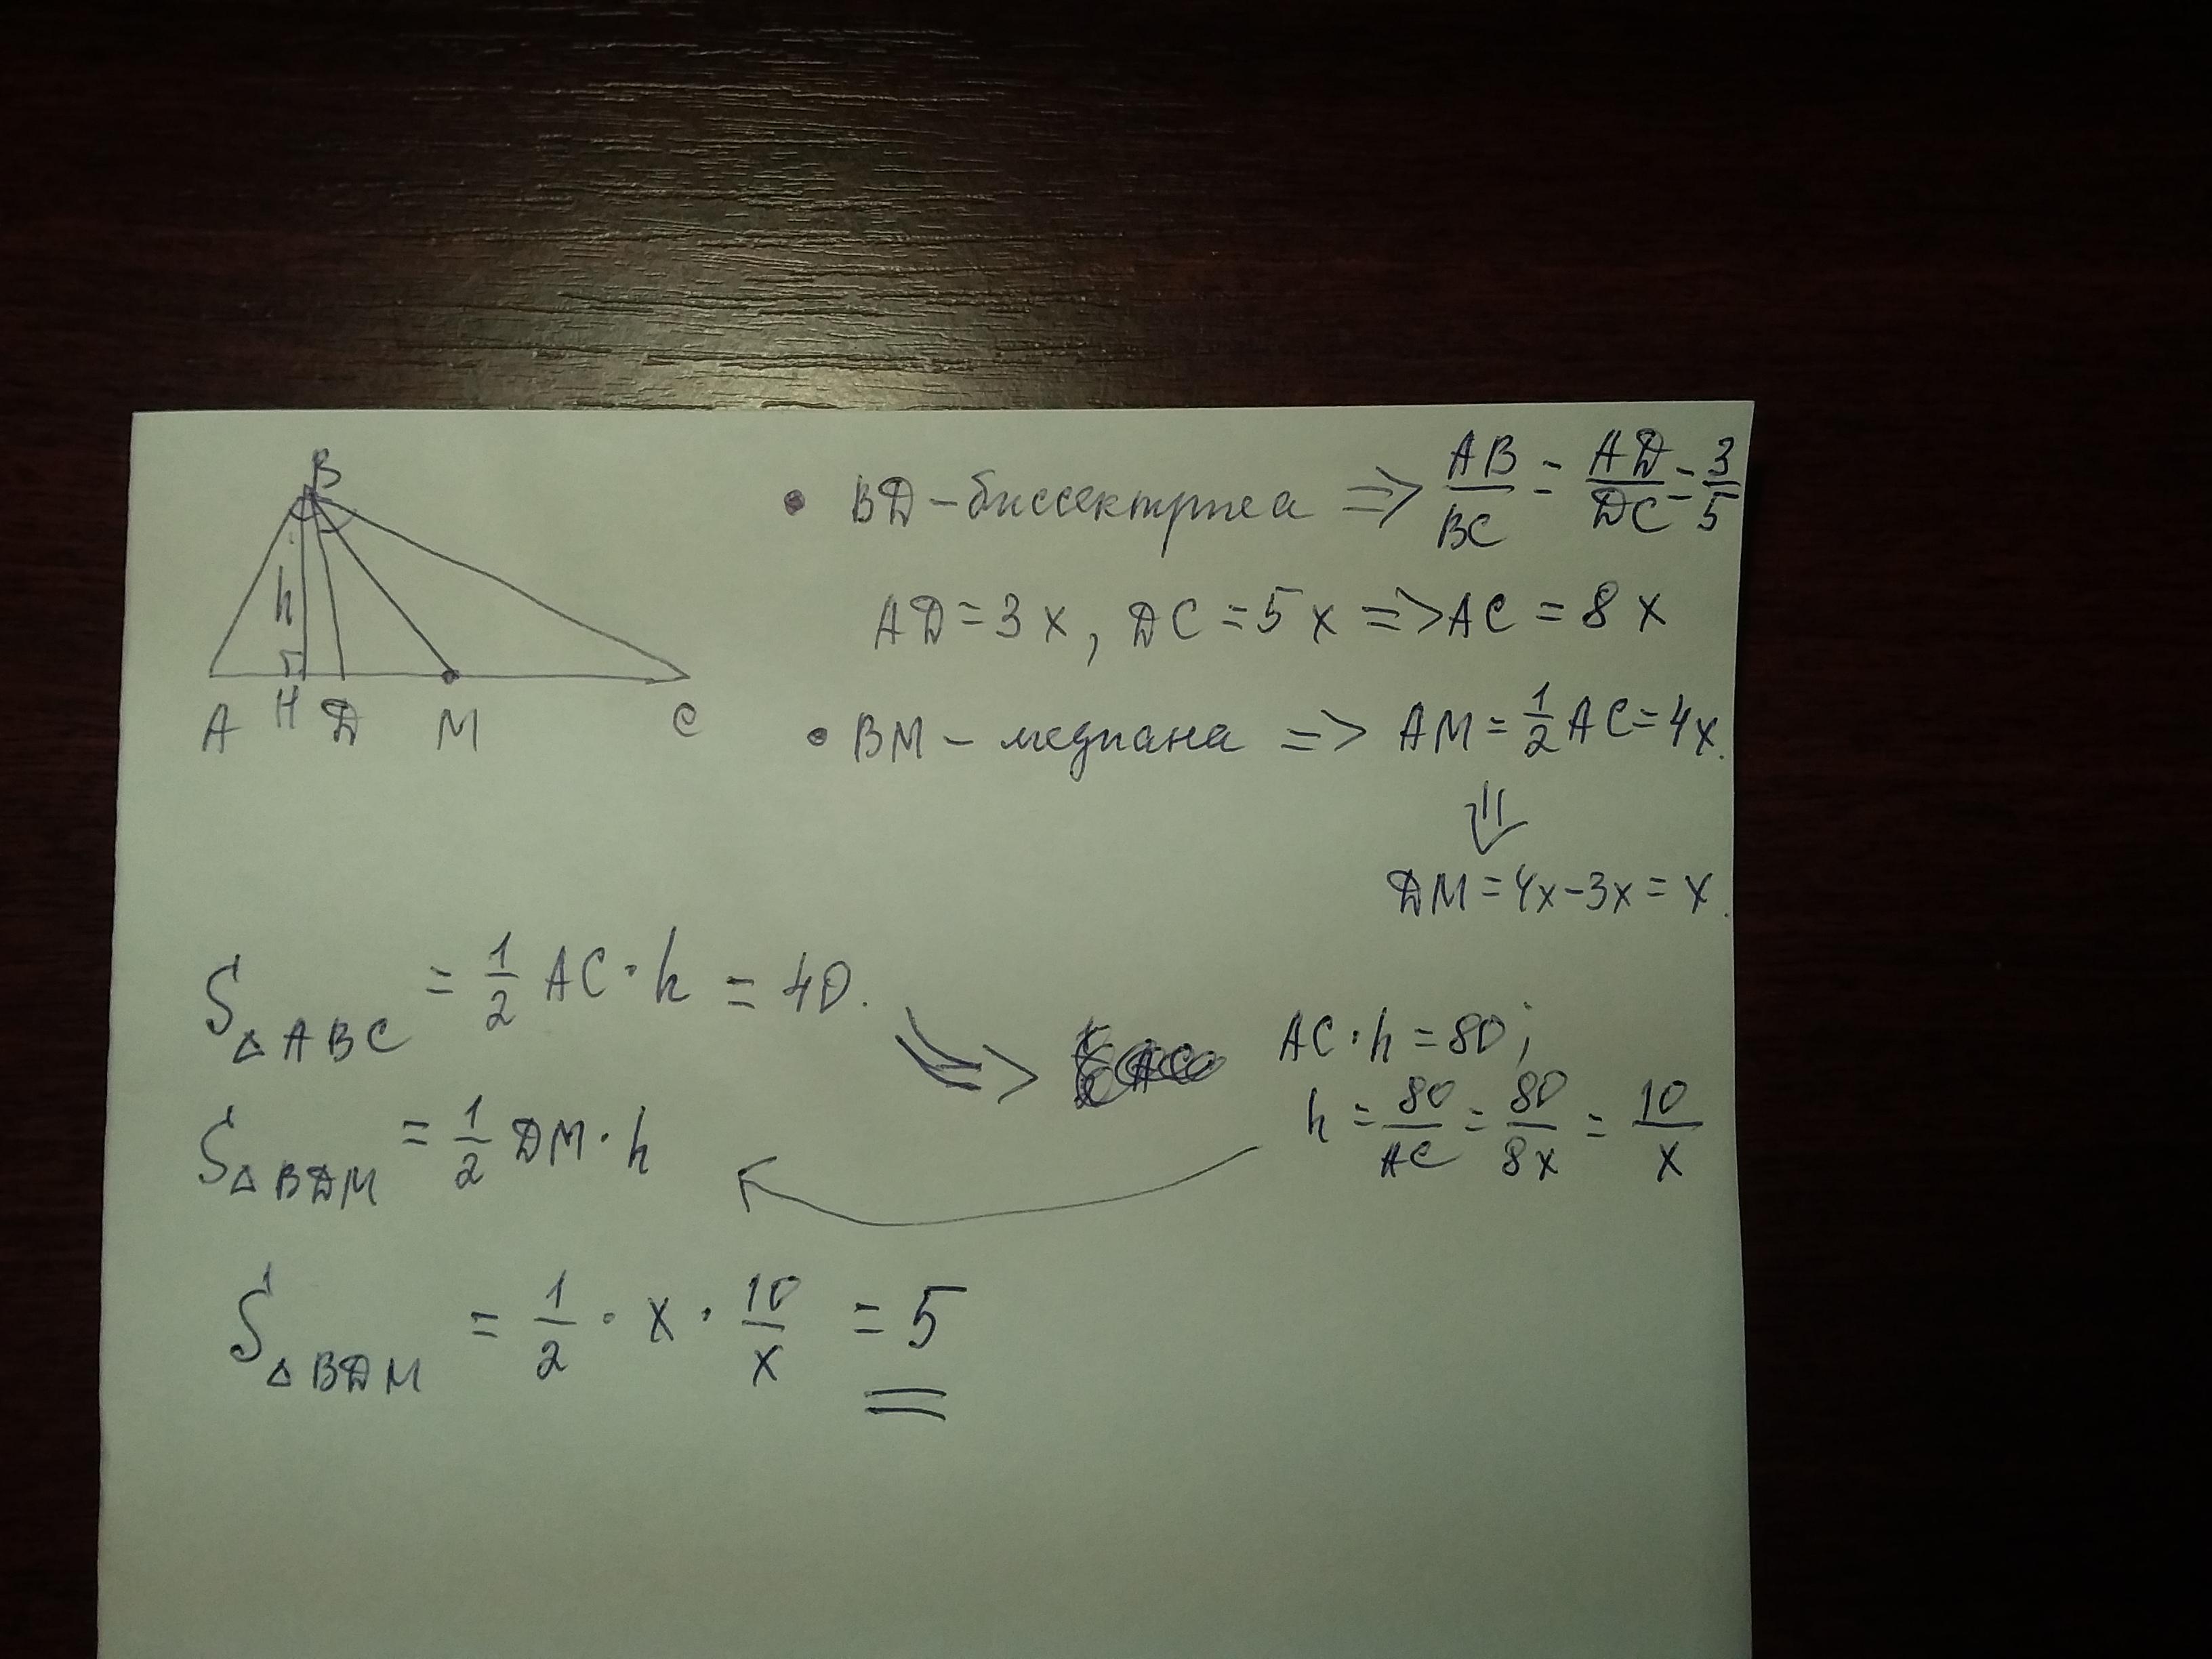 B
h
A H D M C
• BD – биссектриса => AB/BC = AD/DC = 3/5
AD = 3x, DC = 5x => AC = 8x
• BM – медиана => AM = 1/2 AC = 4x.
⇓
DM = 4x-3x = x.
S△ABC = 1/2 AC · h = 40.
=> AC · h = 80;
h = 80/AC = 80/8x = 10/x
S△BDM = 1/2 DM · h
S△BDM = 1/2 · x · 10/x = 5